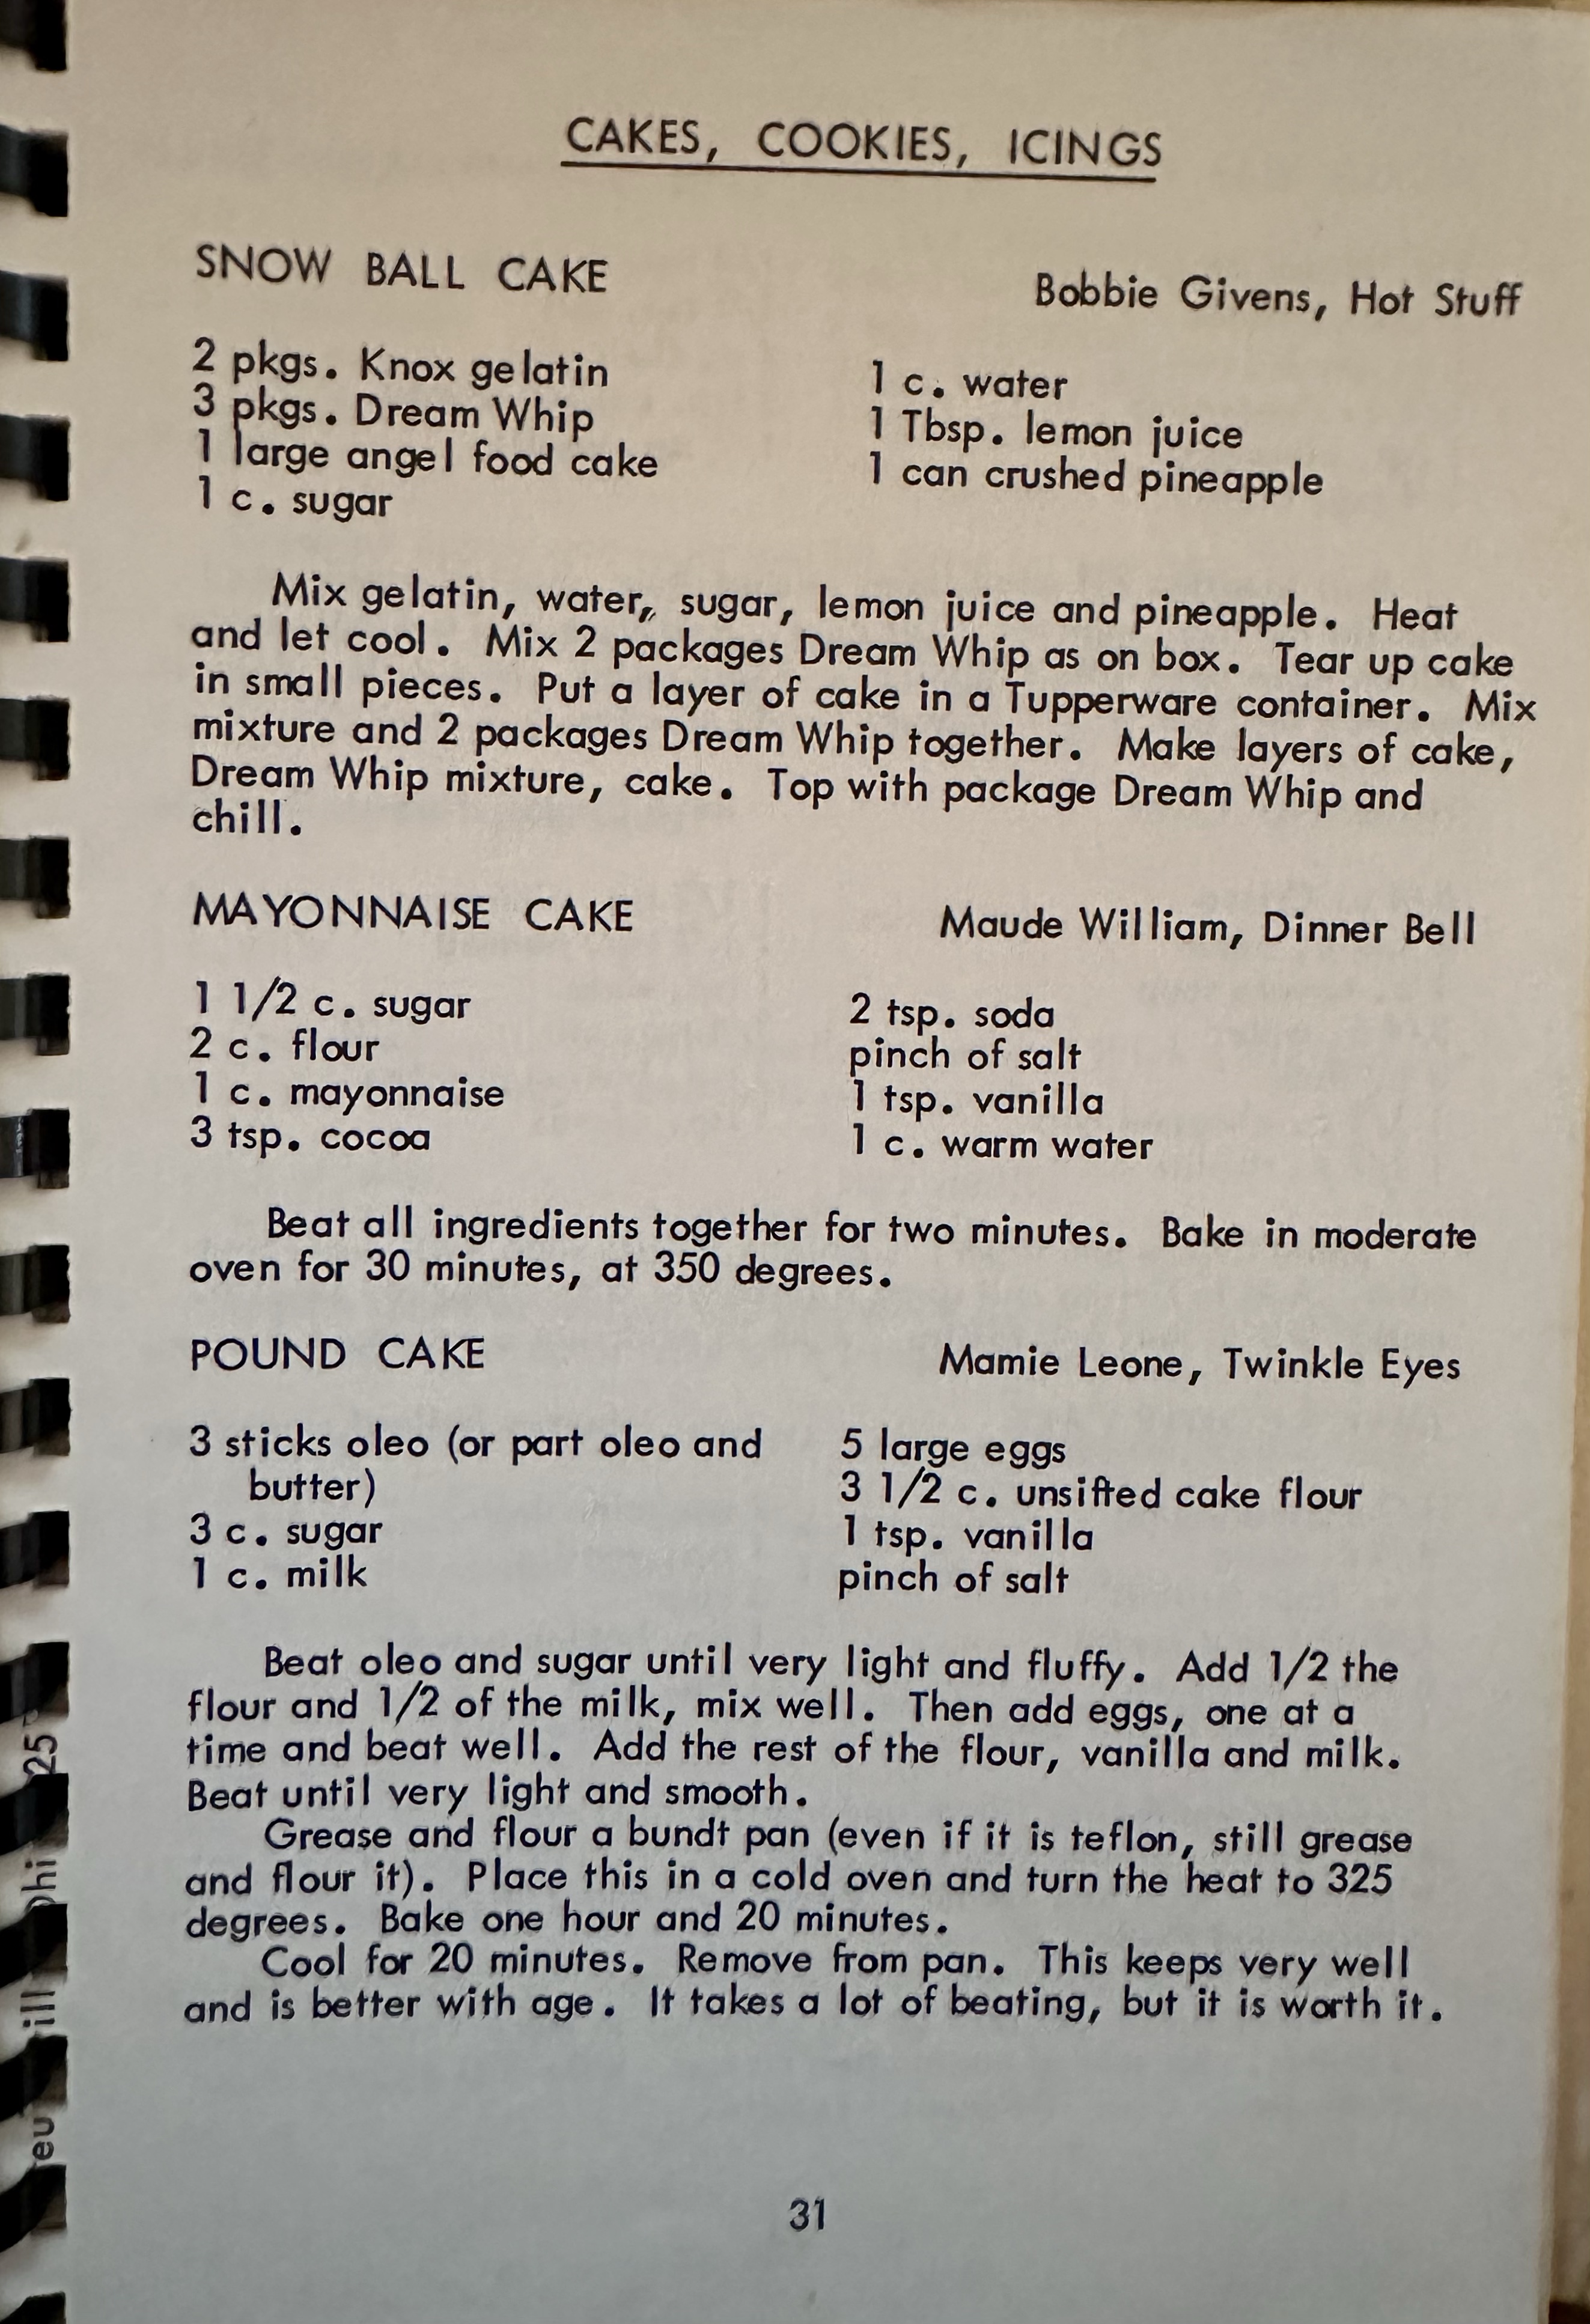 CAKES, COOKIES, ICINGS
SNOW BALL CAKE Bobbie Givens, Hot Stuff
2 pkgs. Knox gelatin 1 c. water
3 pkgs. Dream Whip 1 Tbsp. lemon juice
1 large angel food cake 1 can crushed pineapple
1 c. sugar
Mix gelatin, water, sugar, lemon juice and pineapple. Heat
and let cool. Mix 2 packages Dream Whip as on box. Tear up cake
in small pieces. Put a layer of cake in a Tupperware container. Mix
mixture and 2 packages Dream Whip together. Make layers of cake,
Dream Whip mixture, cake. Top with package Dream Whip and
chill.
MAYONNAISE CAKE Maude William, Dinner Bell
1 1/2 c. sugar 2 tsp. soda
2 c. flour pinch of salt
1 c. mayonnaise 1 tsp. vanilla
3 tsp. cocoa 1 c. warm water
Beat all ingredients together for two minutes. Bake in moderate
oven for 30 minutes, at 350 degrees.
POUND CAKE Mamie Leone, Twinkle Eyes
3 sticks oleo (or part oleo and 5 large eggs
butter) 3 1/2 c. unsifted cake flour
3 c. sugar 1 tsp. vanilla
1 c. milk pinch of salt
Beat oleo and sugar until very light and fluffy. Add 1/2 the
flour and 1/2 of the milk, mix well. Then add eggs, one at a
time and beat well. Add the rest of the flour, vanilla and milk.
Beat until very light and smooth.
Grease and flour a bundt pan (even if it is teflon, still grease
and flour it). Place this in a cold oven and turn the heat to 325
degrees. Bake one hour and 20 minutes.
Cool for 20 minutes. Remove from pan. This keeps very well
and is better with age. It takes a lot of beating, but it is worth it.
31